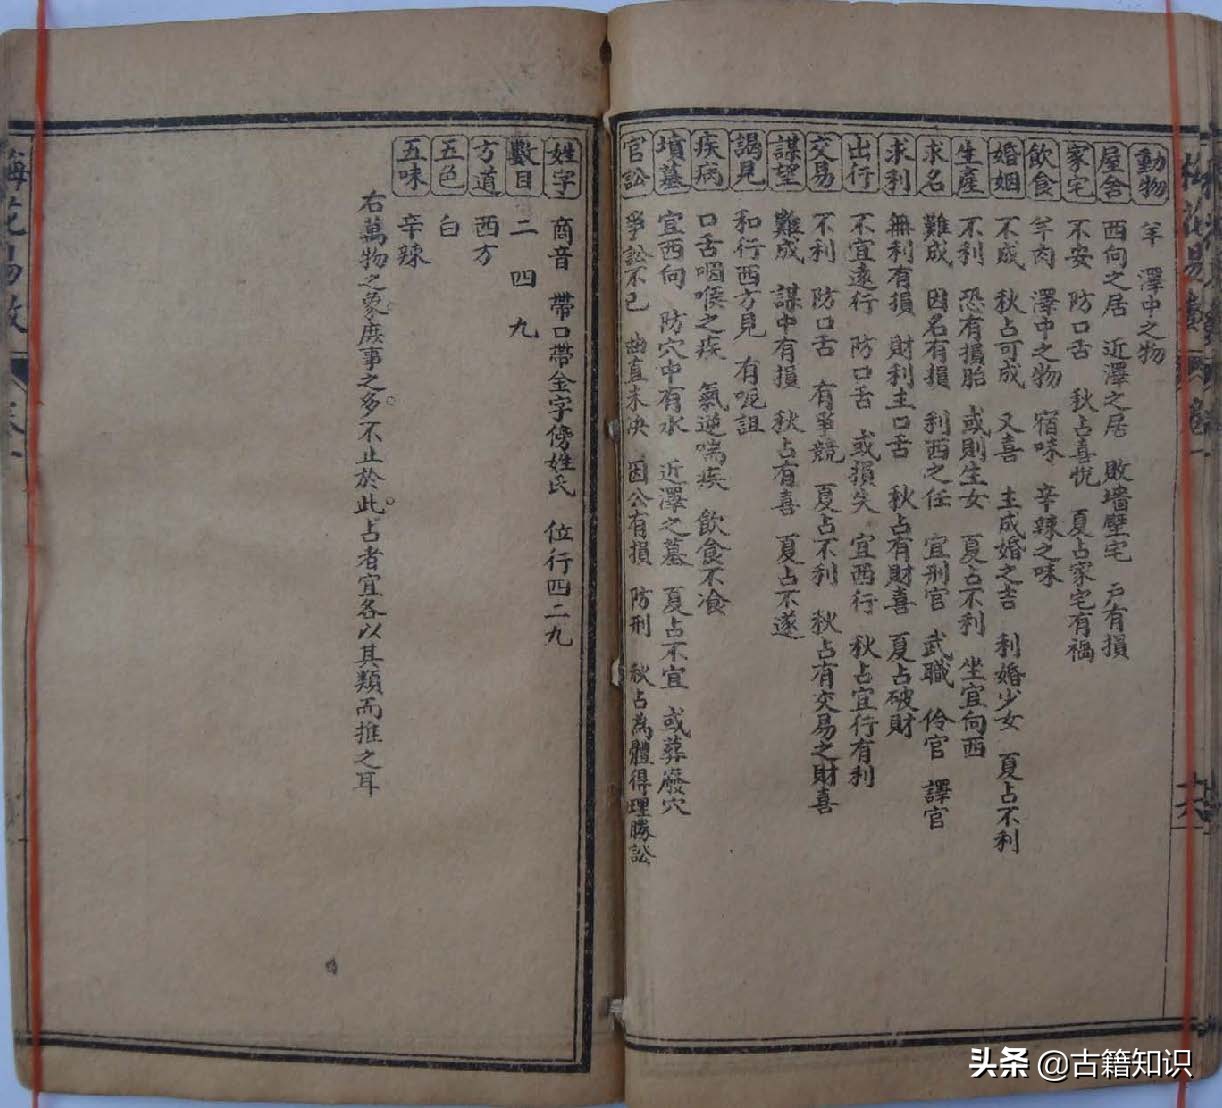 梅花易數 卷一
十六
動物 羊 澤中之物
屋舍 西向之居 近澤之居 敗墻壁宅 戶有損
家宅 不安 防口舌 秋占喜悅 夏占家宅有禍
飲食 羊肉 澤中之物 宿味 辛辣之味
婚姻 不成 秋占可成 又喜 主成婚之吉 利婚少女 夏占不利
生產 不利 恐有損胎 或則生女 夏占不利 坐宜向西
求名 難成 因名有損 利西之任 宜刑官 武職 伶官 譯官
求利 無利有損 財利主口舌 秋占有財喜 夏占破財
出行 不宜遠行 防口舌 或損失 宜西行 秋占宜行有利
交易 不利 防口舌 有爭競 夏占不利 秋占有交易之財喜
謀望 難成 謀中有損 秋占有喜 夏占不遂
謁見 和行西方見 有呪詛
疾病 口舌咽喉之疾 氣逆喘疾 飲食不飡
墳墓 宜西向 防穴中有水 近澤之墓 夏占不宜 或葬廢穴
官訟 爭訟不已 曲直未決 因公有損 防刑 秋占為體得理勝訟
姓字 商音 帶口帶金字傍姓氏 位行四二九
數目 二 四 九
方道 西方
五色 白
五味 辛辣
右萬物之象。庶事之多。不止於此。占者宜各以其類而推之耳
梅花易數 卷一
头条 @古籍知识